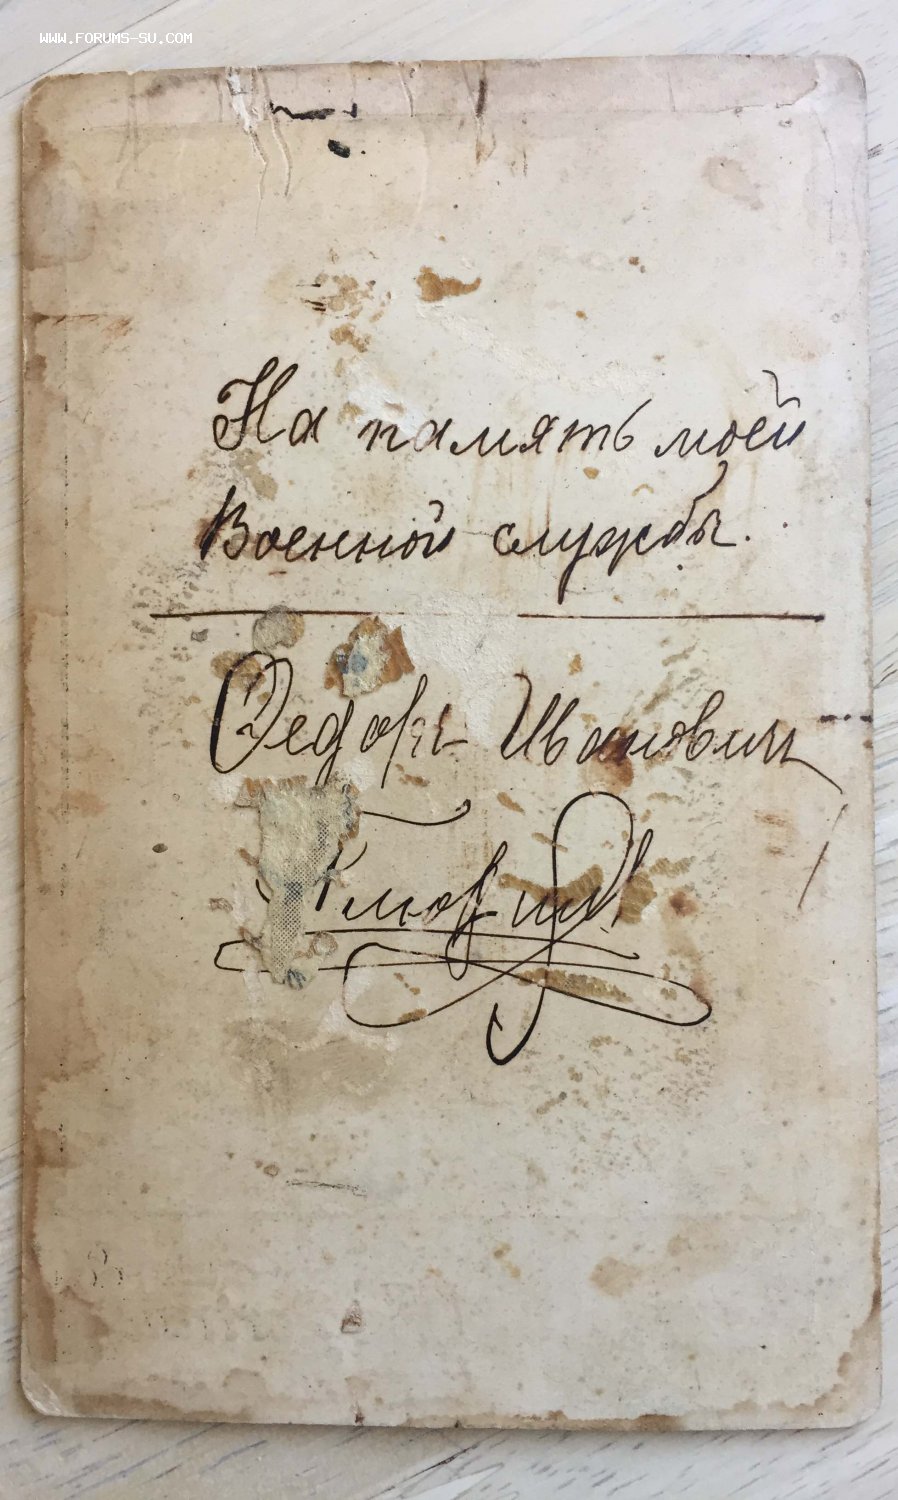 WWW.FORUMS-SU.COM
На память моей
Военной службы.
Иванович